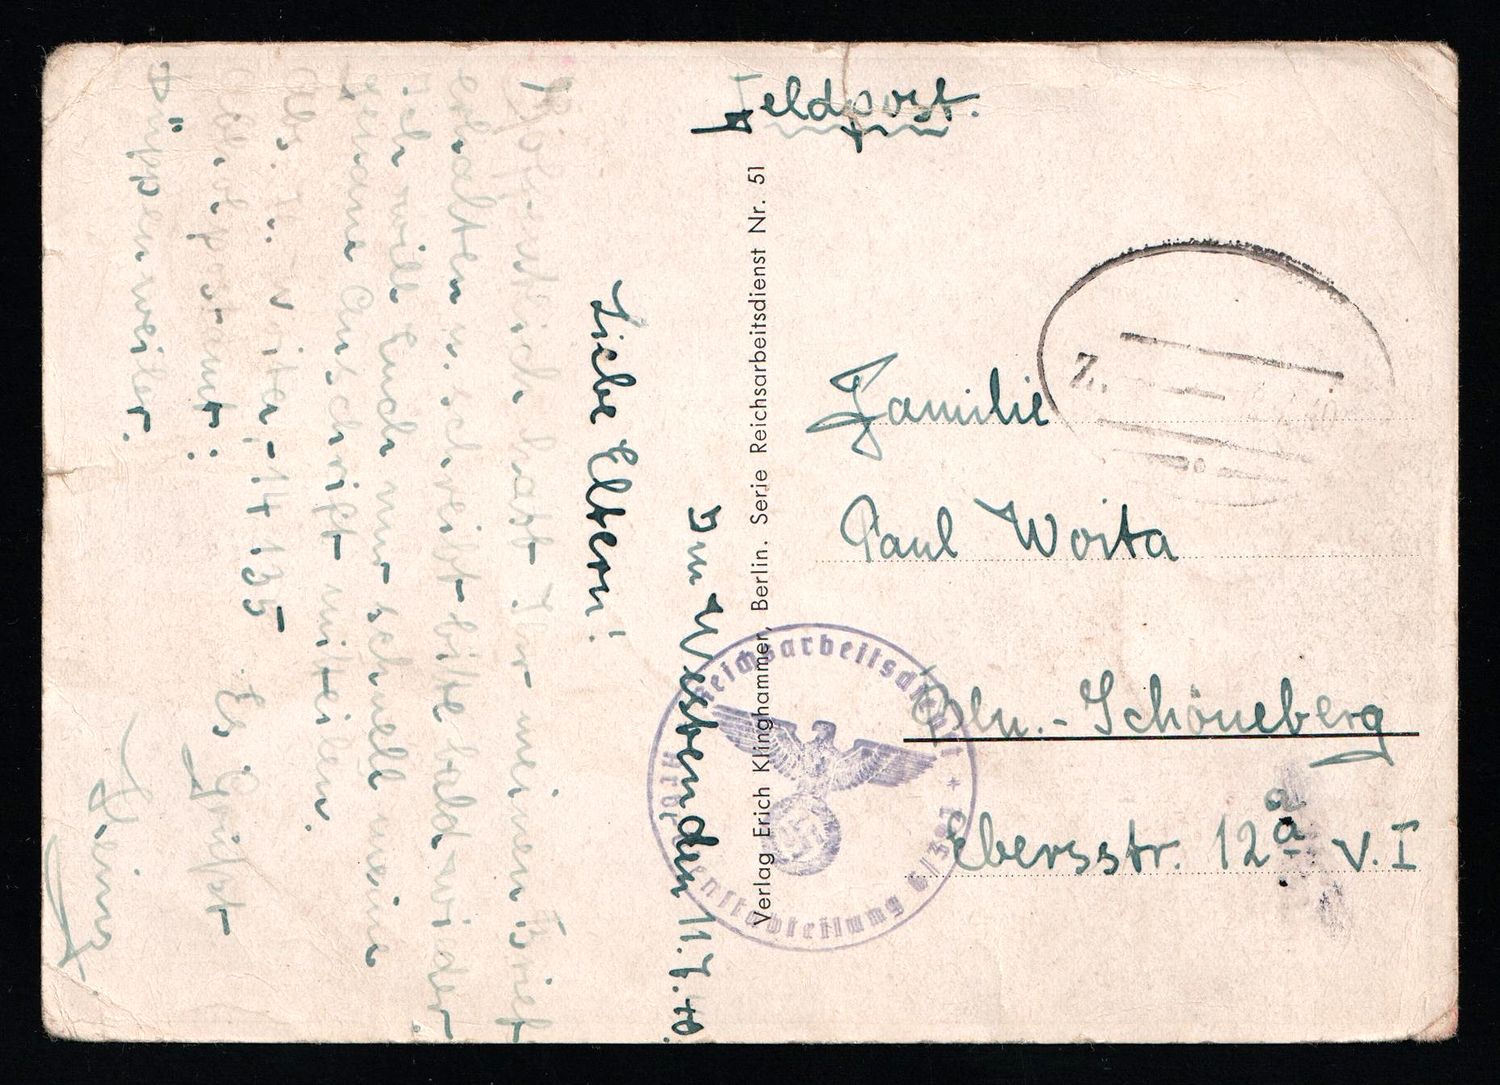 Feldpost.
Im Westen den 11.7.40.
Liebe Eltern!
Hoffentlich habt Ihr meinen Brief
erhalten u. schreibt bitte bald wieder.
Ich will Euch nur schnell meine
genaue Anschrift mitteilen.
Abs. H. Woita, - 14 135 -
Feldpostamt:
Düppenweiler.
Es Grüßt
Heinz.
Verlag Erich Klinghammer, Berlin. Serie Reichsarbeitsdienst Nr. 51
Z.
Familie
Paul Woita
Bln.-Schöneberg
Ebersstr. 12a v. I
Reichsarbeitsdienst